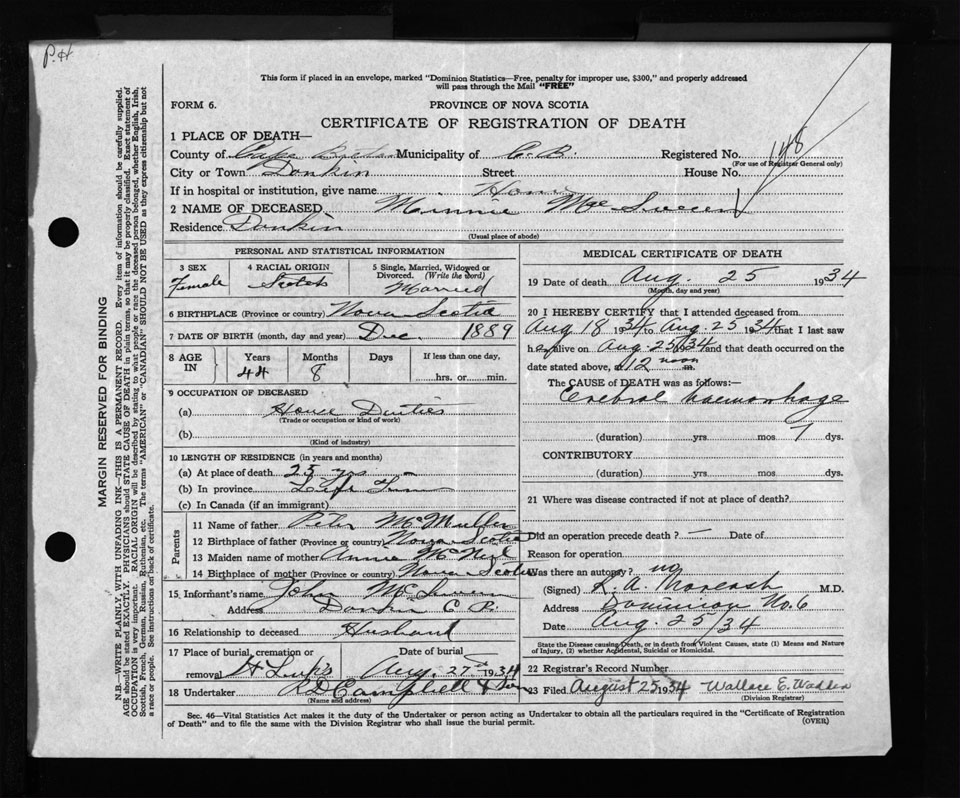 P.H
This form if placed in an envelope, marked "Dominion Statistics—Free, penalty for improper use, $300," and properly addressed
will pass through the Mail "FREE"
FORM 6.
PROVINCE OF NOVA SCOTIA
CERTIFICATE OF REGISTRATION OF DEATH
148
1 PLACE OF DEATH—
County of Cape Breton Municipality of C.B. Registered No.
(For use of Registrar General only)
City or Town Donkin Street House No.
If in hospital or institution, give name Home
2 NAME OF DECEASED Minnie
Residence Donkin
(Usual place of abode)
PERSONAL AND STATISTICAL INFORMATION
3 SEX Female
4 RACIAL ORIGIN Scotch
5 Single, Married, Widowed or Divorced. (Write the word) Married
6 BIRTHPLACE (Province or country) Nova Scotia
7 DATE OF BIRTH (month, day and year) Dec. 1889
8 AGE IN Years 44 Months 8 Days If less than one day, hrs. or min.
9 OCCUPATION OF DECEASED
(a) House Duties
(Trade or occupation or kind of work)
(b)
(Kind of industry)
10 LENGTH OF RESIDENCE (in years and months)
(a) At place of death 25 yrs
(b) In province Life Time
(c) In Canada (if an immigrant)
Parents
11 Name of father Peter McMullen
12 Birthplace of father (Province or country) Nova Scotia
13 Maiden name of mother Annie McNeil
14 Birthplace of mother (Province or country) Nova Scotia
15 Informant's name John
Address Donkin C B.
16 Relationship to deceased Husband
17 Place of burial, cremation or removal Date of burial
Aug. 27th 1934
18 Undertaker A D Campbell & Son
(Name and address)
MEDICAL CERTIFICATE OF DEATH
19 Date of death Aug. 25 1934
(Month, day and year)
20 I HEREBY CERTIFY that I attended deceased from
Aug 18 1934 to Aug. 25 1934 that I last saw
her alive on Aug. 25/34 and that death occurred on the
date stated above, at 12 noon m.
The CAUSE of DEATH was as follows:—
Cerebral haemorrhage
(duration) yrs mos 7 dys.
CONTRIBUTORY
(duration) yrs. mos. dys.
21 Where was disease contracted if not at place of death?
Did an operation precede death? — Date of
Reason for operation
Was there an autopsy? no
(Signed) M.D.
Address Dominion No. 6
Date Aug. 25/34
State the Disease causing Death, or in death from Violent Causes, state (1) Means and Nature
of Injury, (2) whether Accidental, Suicidal or Homicidal.
22 Registrar's Record Number
23 Filed August 25 1934 Wallace E. Wadden
(Division Registrar)
Sec. 46—Vital Statistics Act makes it the duty of the Undertaker or person acting as Undertaker to obtain all the particulars required in the "Certificate of Registration
of Death" and to file the same with the Division Registrar who shall issue the burial permit.
(OVER)
MARGIN RESERVED FOR BINDING
N.B.—WRITE PLAINLY, WITH UNFADING INK—THIS IS A PERMANENT RECORD. Every item of information should be carefully supplied.
AGE should be stated EXACTLY. PHYSICIANS should STATE CAUSE OF DEATH in plain terms, so that it may be properly classified. Exact statement of
OCCUPATION is very important. RACIAL ORIGIN will be described by stating to what people or race the deceased person belonged, whether English, Irish,
Scottish, French, German, Russian, Ruthenian, etc. The terms "AMERICAN" or "CANADIAN" SHOULD NOT BE USED as they express citizenship but not
a race or people. See instructions on back of certificate.